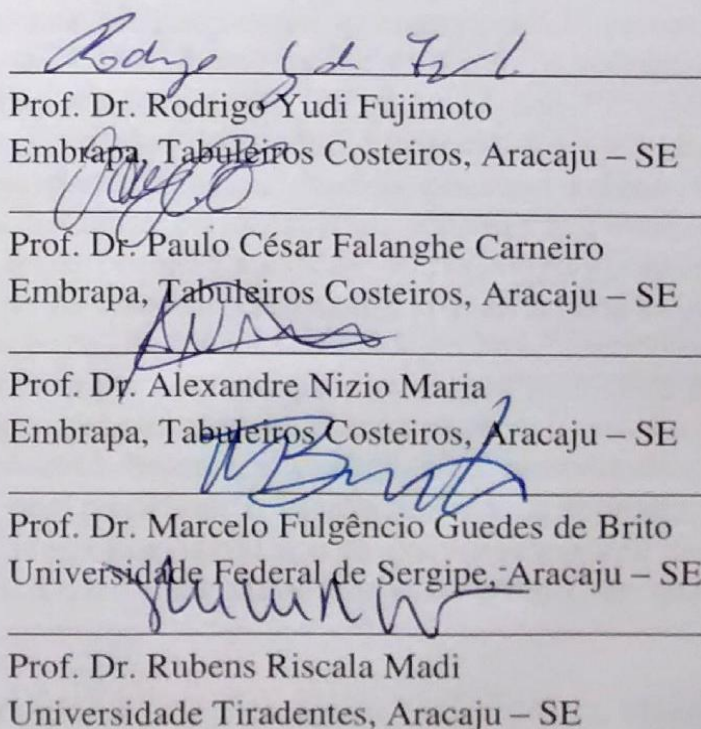 Rodrigo
Prof. Dr. Rodrigo Yudi Fujimoto
Embrapa, Tabuleiros Costeiros, Aracaju – SE
Prof. Dr. Paulo César Falanghe Carneiro
Embrapa, Tabuleiros Costeiros, Aracaju – SE
Prof. Dr. Alexandre Nizio Maria
Embrapa, Tabuleiros Costeiros, Aracaju – SE
Prof. Dr. Marcelo Fulgêncio Guedes de Brito
Universidade Federal de Sergipe, Aracaju – SE
Prof. Dr. Rubens Riscala Madi
Universidade Tiradentes, Aracaju – SE